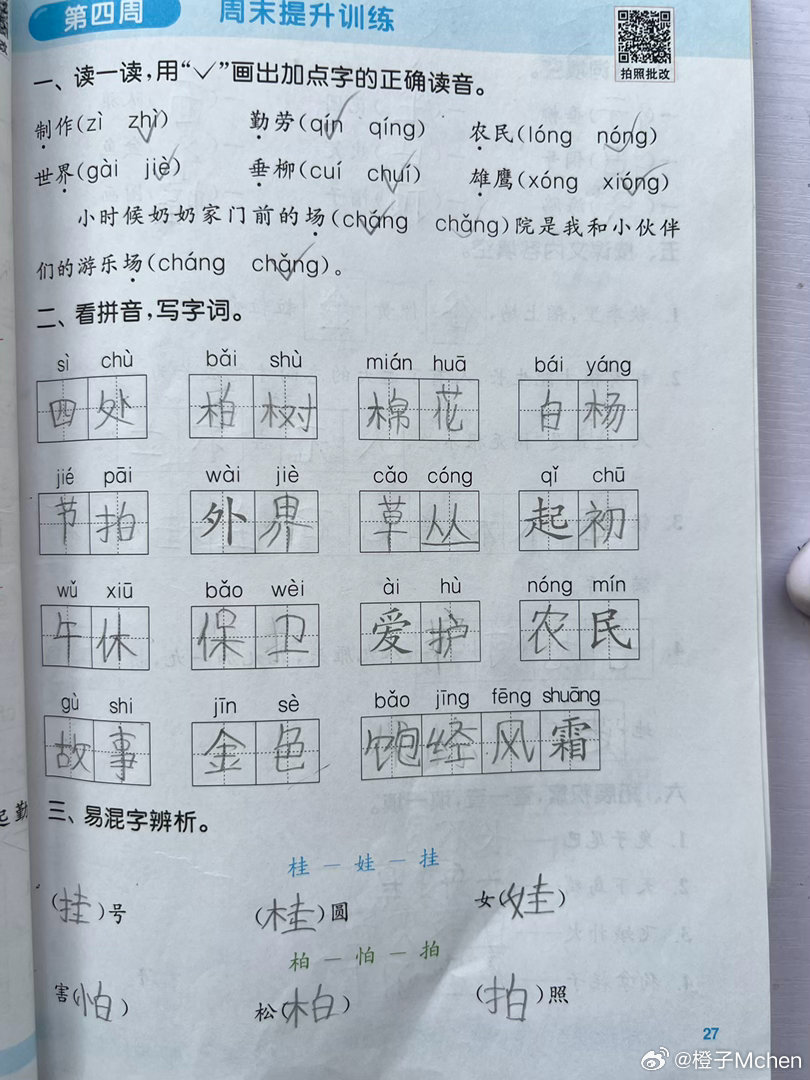 第四周 周末提升训练
拍照批改
一、读一读,用“✓”画出加点字的正确读音。
制作(zì zhì) 勤劳(qín qíng) 农民(lóng nóng)
世界(gài jiè) 垂柳(cuí chuí) 雄鹰(xóng xióng)
小时候奶奶家门前的场(cháng chǎng)院是我和小伙伴
们的游乐场(cháng chǎng)。
二、看拼音,写字词。
sì chù bǎi shù mián huā bái yáng
四处 柏树 棉花 白杨
jié pāi wài jiè cǎo cóng qǐ chū
节拍 外界 草丛 起初
wǔ xiū bǎo wèi ài hù nóng mín
午休 保卫 爱护 农民
gù shi jīn sè bǎo jīng fēng shuāng
故事 金色 饱经风霜
三、易混字辨析。
桂－娃－挂
(挂)号 (桂)圆 女(娃)
柏－怕－拍
害(怕) 松(柏) (拍)照
27
@橙子Mchen